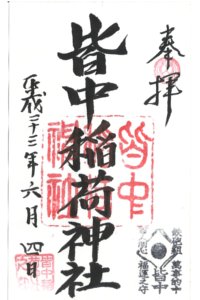 奉拝
皆中稲荷神社
平成二十三年六月四日
皆中
稲荷
神社
皆中
福運之守